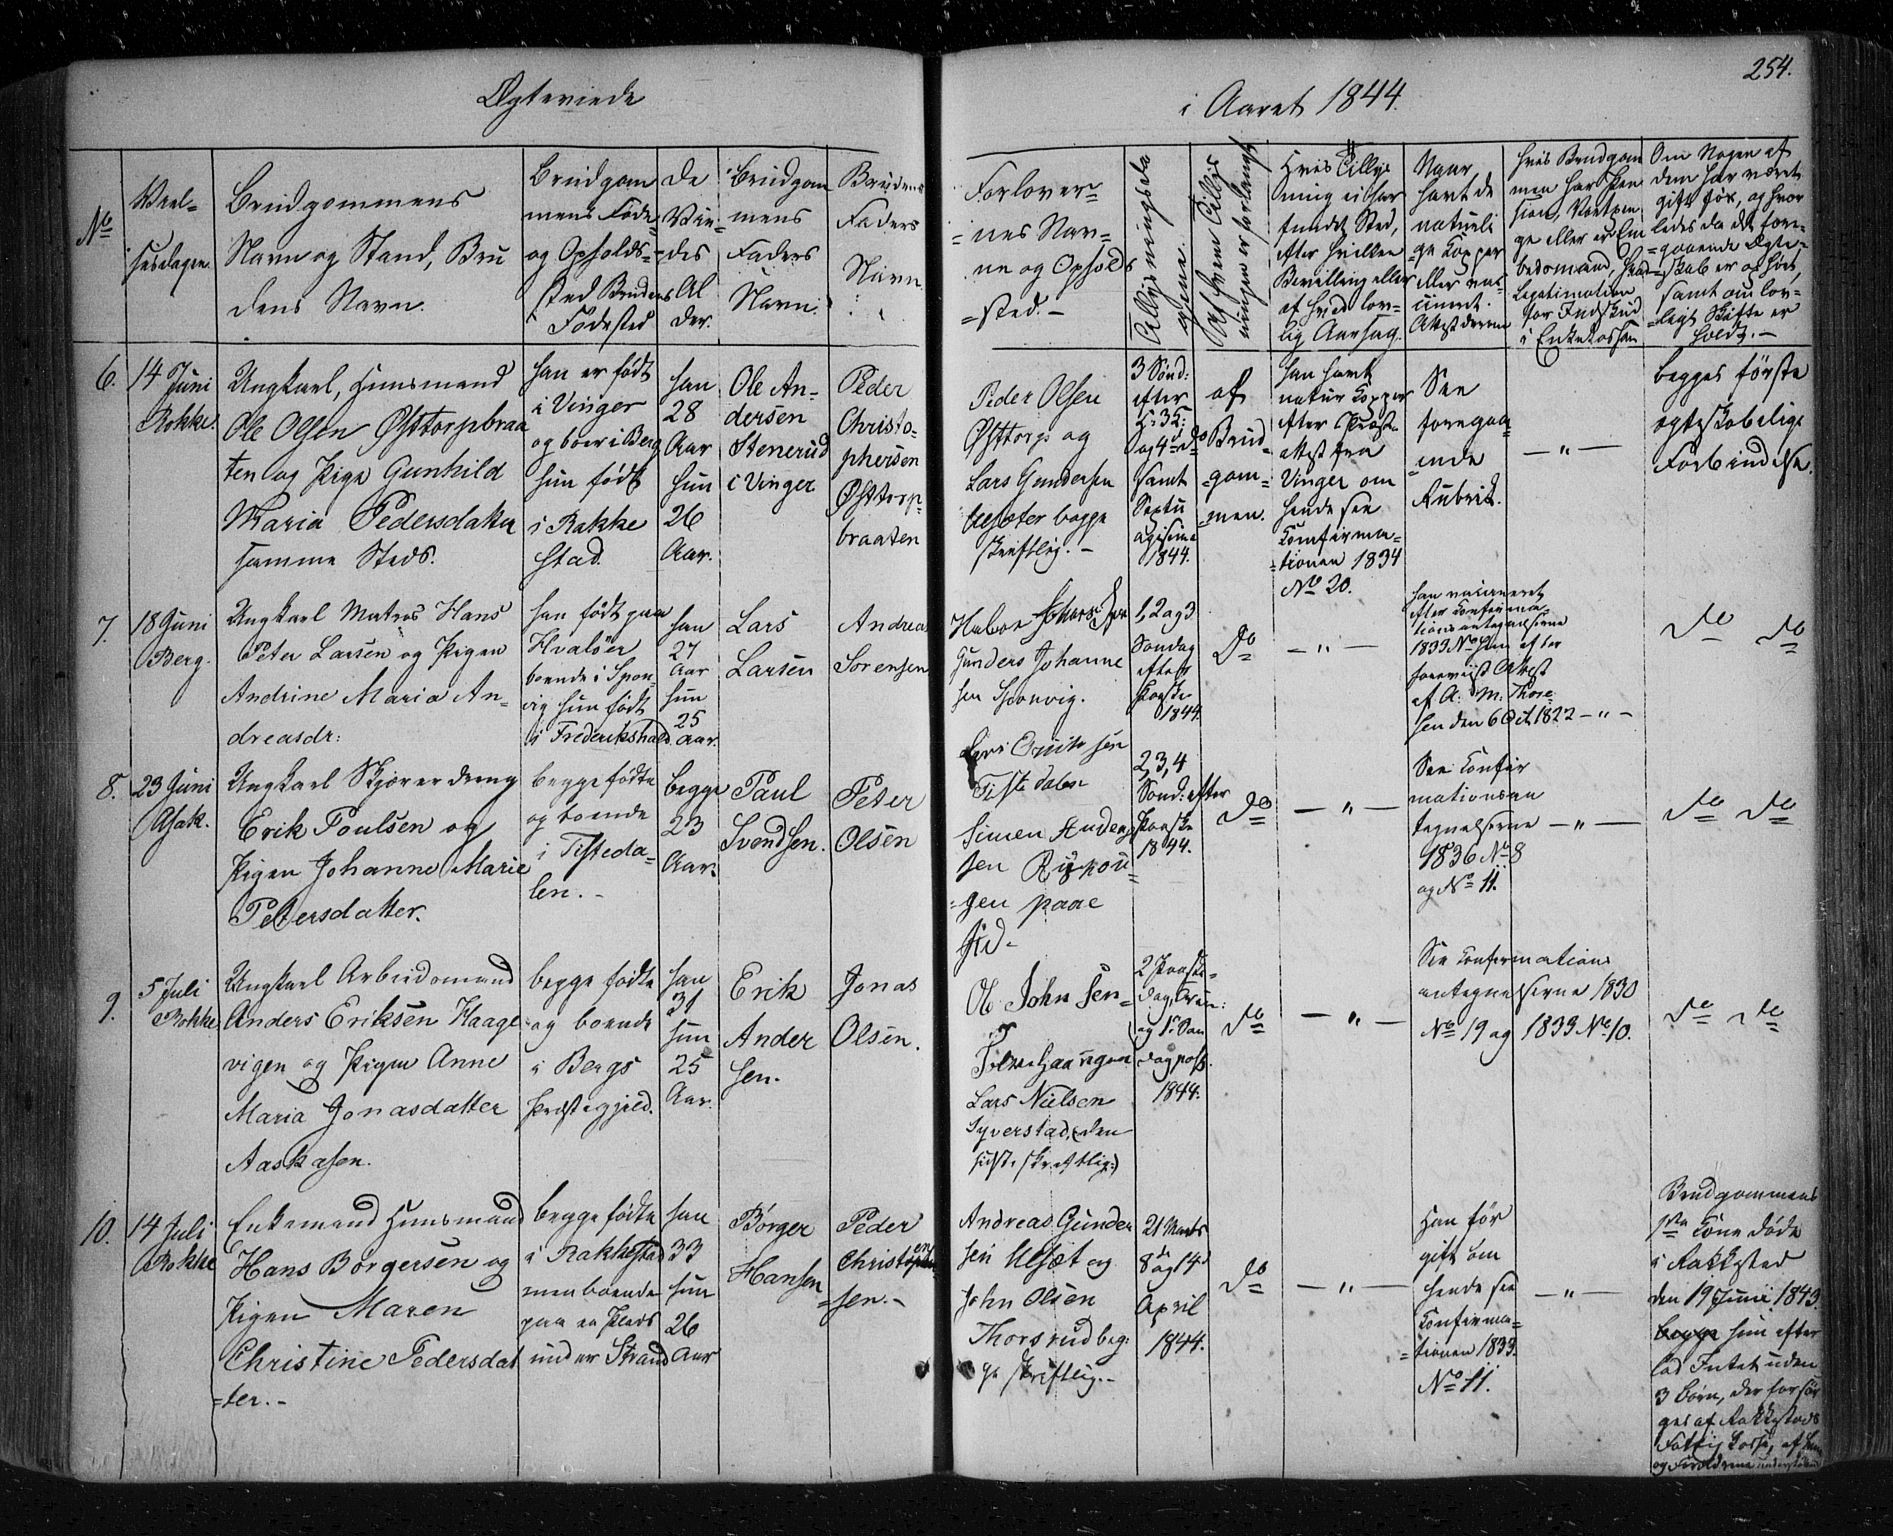 254.
Ægteviede
i Aaret 1844.
No
Viel-
sesdagen
Brudgommens
Navn og Stand, Bru
dens Navn.
Brudgom
mens Føde
og Opholds-
sted Brudens
Fødested
De
Vie-
des
Al
der.
Brudgom
mens
Faders
Navn.
Brudens
Faders
Navn
Forlover
nes Nav-
ne og Opholds
sted.-
Tillysningsda
gene.
Af hvem Tillys
ningen er forlangt
Hvis Tillys
ning ei har
fundet Sted,
efter hvilken
Bevilling eller
af hvad lov-
lig Aarsag.
Naar
havt de
naturli
ge Kopper
eller vac
cineret.
Attest derom
Hvis Brudgom
men har Pen
sion, Vartpen
ge eller er Em
bedsmand, hvad
Legitimation
for Indskud
i Enkekassen
Om Nogen af
dem har været
gift før, og hvor
ledes da det fore-
gaaende Ægte-
skab er ophørt,
samt om lov-
ligt Skifte er
holdt.-
6.
14 Juni
Rokke.
Ungkarl, Huusmand
Ole Olsen Østtorpbraa
ten og Pige Gunhild
Maria Pedersdatter
samme Steds.
han er født
i Vinger
og boer i Berg
hun født
i Rakke
stad.
han
28
Aar
hun
26
Aar.
Ole An-
dersen
Stenerud
i Vinger
Peder
Christo-
phersen
Østtorp-
braaten
Peder Olsen
Østtorp og
Lars Gundersen
Ulsæter begge
skriftlig.-
3 Sønd:
efter
H: 3 K:
og 4de do
samt
Septu
agesima
1844.
af
Brud
gom-
men.
han havt
natur Kopper
efter Præste
attest fra
Vinger om
hende see
Confirma-
tionen 1834
No 20.
See
foregaa
ende
Rubrik.
— „ —
begges første
egteskabelige
Forbindelse.
7.
18 Juni
Berg.
Ungkarl Matros Hans
Peter Larsen og Pigen
Andrine Maria An-
dreasdr:
han født paa
Hvaløer
boende i Spon-
vig hun født
i Frederikshald
han
27
Aar
hun
25
Aar.
Lars
Larsen
Andreas
Sørensen
Halvor
Gunders Johanne
sen Sponvig.
1, 2 og 3
Søndag
efter
Paaske
1844
do
— „ —
han vaccineret
efter Confirma-
tionsantegnelserne
1833 No hun efter
foreviist Attest
af A. M. Thore
sen den 6 Oct. 1822 — „ —
do do
8.
23 Juni
Asak.
Ungkarl Skjærerdreng
Erik Poulsen og
Pigen Johanne Marie
Petersdatter.
begge fødte
og boende
i Tisteda-
len.-
begge
23
Aar.
Paul
Svendsen.
Peter
Olsen
Lars
Tistedalen
Simen Anders
sen
gen paae
Id-
2, 3, 4
Sønd: efter
Paaske
1844.
do
— „ —
See Confir
mationsan
tegnelserne — „ —
1836 No 8
og No 11.
do do
9.
5 Juli
Rokke
Ungkarl Arbeidsmand
Anders Eriksen Haage
vigen og Pigen Anne
Maria Jonasdatter
Aaskasen.
begge fødte
og boende
i Bergs
Præstegjeld.
han
31
hun
25
Aar.
Erik
Ander
sen.
Jonas
Olsen.
Ole Johnsen-
Lars Nielsen
Syverstad, (den
sidste skriftlig.)
2 Paaske-
dag,
og 1 Søn
dag post.
1844.
do
— „ —
See Confirmations
antegnelserne 1830
No 19 og 1833 No 10.
do do
10.
14 Juli
Rokke
Enkemand Huusmand
Hans Børgersen og
Pigen Maren
Christine Pedersdat
ter.-
begge fødte
i Rakkestad
men boende
paa en Plads
under Strand
han
33
hun
26
Aar
Børger
Hansen
Peder
Christophen
sen.-
Andreas Gunder
sen Ulsæt og
John Olsen
Thorsrud beg:
ge skriftlig.-
21 Marts
8de og 14de
April
1844.
do
— „ —
Han før
gift om
hende see
Confirma-
tionen 1833.
No 11.
— „ —
Brudgommens
1ste Kone døde
i Rakkestad
den 19 Juni 1843.
begge hun efter
lod Intet uden
3 Børn, der forsør
ges af Rakkestads
Fattig Kasse, af ham
og Forældrene understøttes